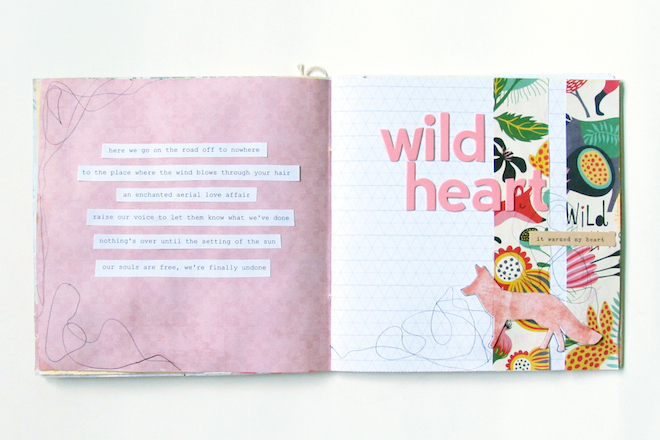 here we go on the road off to nowhere
to the place where the wind blows through your hair
an enchanted aerial love affair
raise our voice to let them know what we've done
nothing's over until the setting of the sun
our souls are free, we're finally undone
wild
heart
WiLd
it warmed my heart